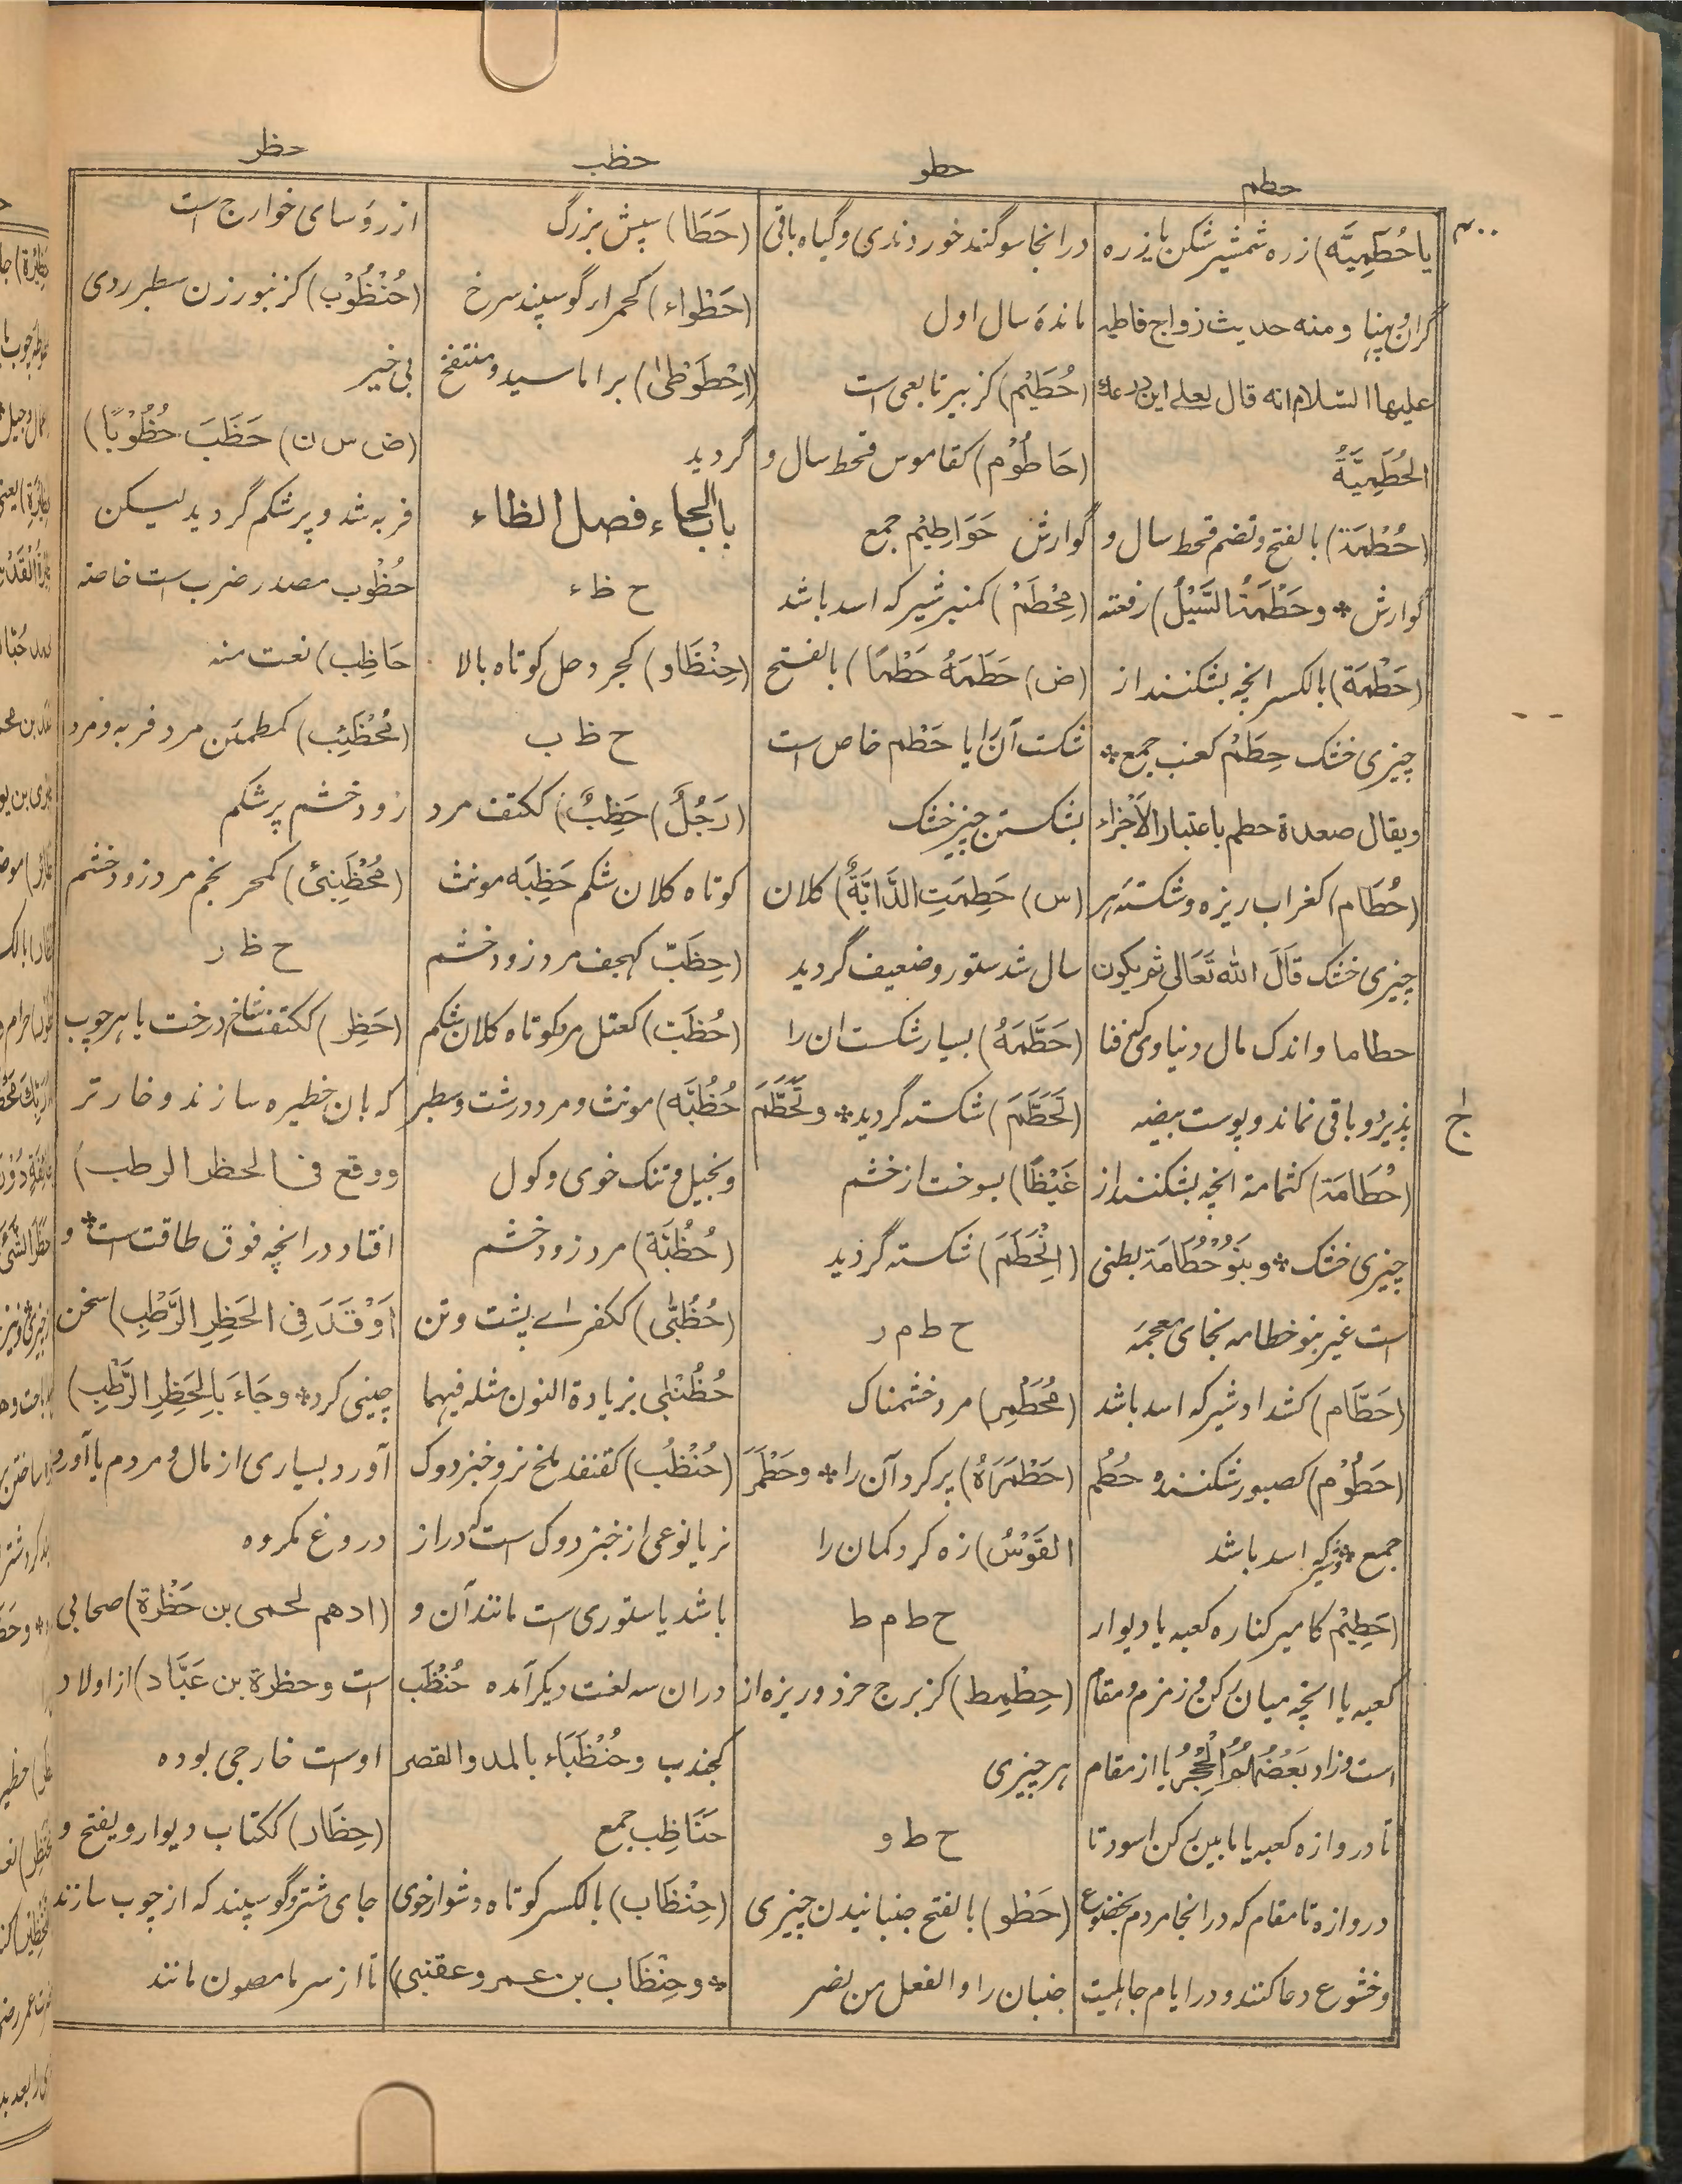 حطم
حطو
حظب
حظر
۳۰۰
یا حُطَمِیَّه) زره شمشیر شکن یا زره
گران و پهنا و منه حدیث زواج فاطمه
علیها السلام انه قال لعلی این درعك
الحُطَمِیَّةُ
(حُطْمَة) بالفتح و تضم قحط سال و
گوارش * و حَطْمَةُ السَّیْلُ) رفعته
(حَطْمَة) بالکسر انچه بشکنند از
چیزی خشک حِطَمٌ کعنب جمع *
ویقال صعدة حطم باعتبار الاَجْزاء
(حُطَام) کغراب ریزه و شکسته هر
چیزی خشک قَالَ الله تَعَالی ثم یکون
حطاما و اندک مال دنیاوی که فنا
پذیرد و باقی نماند و پوست بیضه
(حُطَامَة) کثمامة انچه بشکنند از
چیزی خشک * و بَنُوْ حُطَامَة بطنی
است غیر بنو خطامه بخای معجمه
(حَطَّام) کشداد شیر که اسد باشد
(حَطُوْم) کصبور شکننده حُطُم
جمع * و شیر که اسد باشد
(حَطِیْم کامیر کناره کعبه یا دیوار
کعبه یا انچه میان رکن و زمزم و مقام
است و زاد بَعْضُهُمُ الْحِجْرُ یا از مقام
تا دروازه کعبه یا ما بین رکن اسود تا
دروازه تا مقام که در انجا مردم بخضوع
و خشوع دعا کنند و در ایام جاهلیت
در انجا سوگند خوردندی و گیاه باقی
ماندهٔ سال اول
(حُطَیْم) کزبیر تابعی است
(حَاطُوْم) کقاموس قحط سال و
گوارش حَوَاطِیْم جمع
(مِحْطَمْ) کمنبر شیر که اسد باشد
(ض) حَطَمَهُ حَطْمًا) بالفتح
شکست آن را یا حَطْم خاص است
بشکستن چیز خشک
(س) حَطِمَتِ الدَّابَّةُ) کلان
سال شد ستور و ضعیف گردید
(حَطَّمَهُ) بسیار شکست ان را
(تَحَطَّمَ) شکسته گردید * و تَحَطَّمَ
غَیْظًا) بسوخت از خشم
(اِنْحَطَمَ) شکسته گردید
ح ط م ر
(مُحَطْمِر) مرد خشمناک
(حَطْمَرَهُ) پر کرد آن را * و حَطْمَرَ
القَوْسُ) زه کرد کمان را
ح ط م ط
(حِطْمِط) کزبرج خرد و ریزه از
هر چیزی
ح ط و
(حَطْو) بالفتح جنبانیدن چیزی
جنبان را والفعل من نصر
(حَطَا) سپش بزرگ
(حَطْواء) کحمراء گوسپند سرخ
(اِحْطَوْطیٰ) براماسید و منتفخ
گردید
باب الحاء فصل الظاء
ح ظ ء
(حِنْظَاو) کجردحل کوتاه بالا
ح ظ ب
(رَجُلٌ) حَظِبٌ) ککتف مرد
کوتاه کلان شکم حَظِبَه مونث
(حِظَبّ کهجف مرد زود خشم
(حُظُبّ) کعتل مرد کوتاه کلان شکم
حُظُبَّه) مونث و مرد درشت و سطبر
و بخیل و تنک خوی و کول
(حُظُبَّة) مرد زود خشم
(حُظُبّٰی) ککفرے پشت و تن
حُظُنْبٰی بزیادة النون مثله فیهما
(حُنْظُب) کقنفد ملخ نر و خبزدوک
نر یا نوعی از خبزدوک است که دراز
باشد یا ستوری است مانند آن و
در ان سه لغت دیگر آمده حُنْظَب
کجندب و حُنْظَبَاء بالمد والقصر
حَنَاظِب جمع
(حِنْظَاب) بالکسر کوتاه دشوار خوی
* و حِنْظَاب بن عمرو عقنبی)
از رؤسای خوارج است
(حُنْظُوْب) کزنبور زن سطبر ردی
بی خیر
(ض س ن) حَظَبَ حُظُوْبًا)
فربه شد و پرشکم گردید لیکن
حُظُوب مصدر ضرب است خاصته
حَاظِب) نعت منه
(مُحْظَئِب) کمطمئن مرد فربه و مرد
زود خشم پرشکم
(مُحْظَنْبِئ) کمحرنجم مرد زود خشم
ح ظ ر
(حَظِر) ککتف شاخ درخت یا هر چوب
که بان خطیره سازند و خار تر
و وقع فی الحظر الرطب)
افتاد در انچه فوق طاقت است * و
اَوْقَدَ فِی الحَظِرِ الرَّطْبِ) سخن
چینی کرد * و جَاءَ بِالحَظِرِ الرَّطْبِ)
آورد بسیاری از مال و مردم یا آورد
دروغ مکروه
(ادهم لحمی بن حَظْرة) صحابی
است و حظرة بن عَبَّاد) از اولاد
اوست خارجی بوده
(حِظَار) ککتاب دیوار و یفتح و
جای شتر و گوسپند که از چوب سازند
تا از سرما مصون مانند